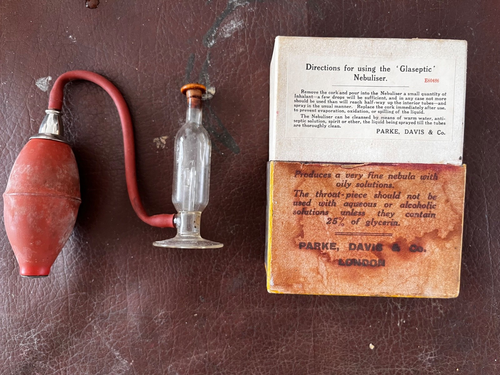 Directions for using the 'Glaseptic'
Nebuliser.
Remove the cork and pour into the Nebuliser a small quantity of
Inhalant—a few drops will be sufficient, and in any case not more
should be used than will reach half-way up the interior tubes—and
spray in the usual manner. Replace the cork immediately after use,
to prevent evaporation, oxidation, or spilling of the liquid.
The Nebuliser can be cleansed by means of warm water, anti-
septic solution, spirit or ether, the liquid being sprayed till the tubes
are thoroughly clean.
PARKE, DAVIS & Co.
Produces a very fine nebula with
oily solutions.
The throat-piece should not be
used with aqueous or alcoholic
solutions unless they contain
25% of glycerin.
PARKE, DAVIS & Co.
LONDON